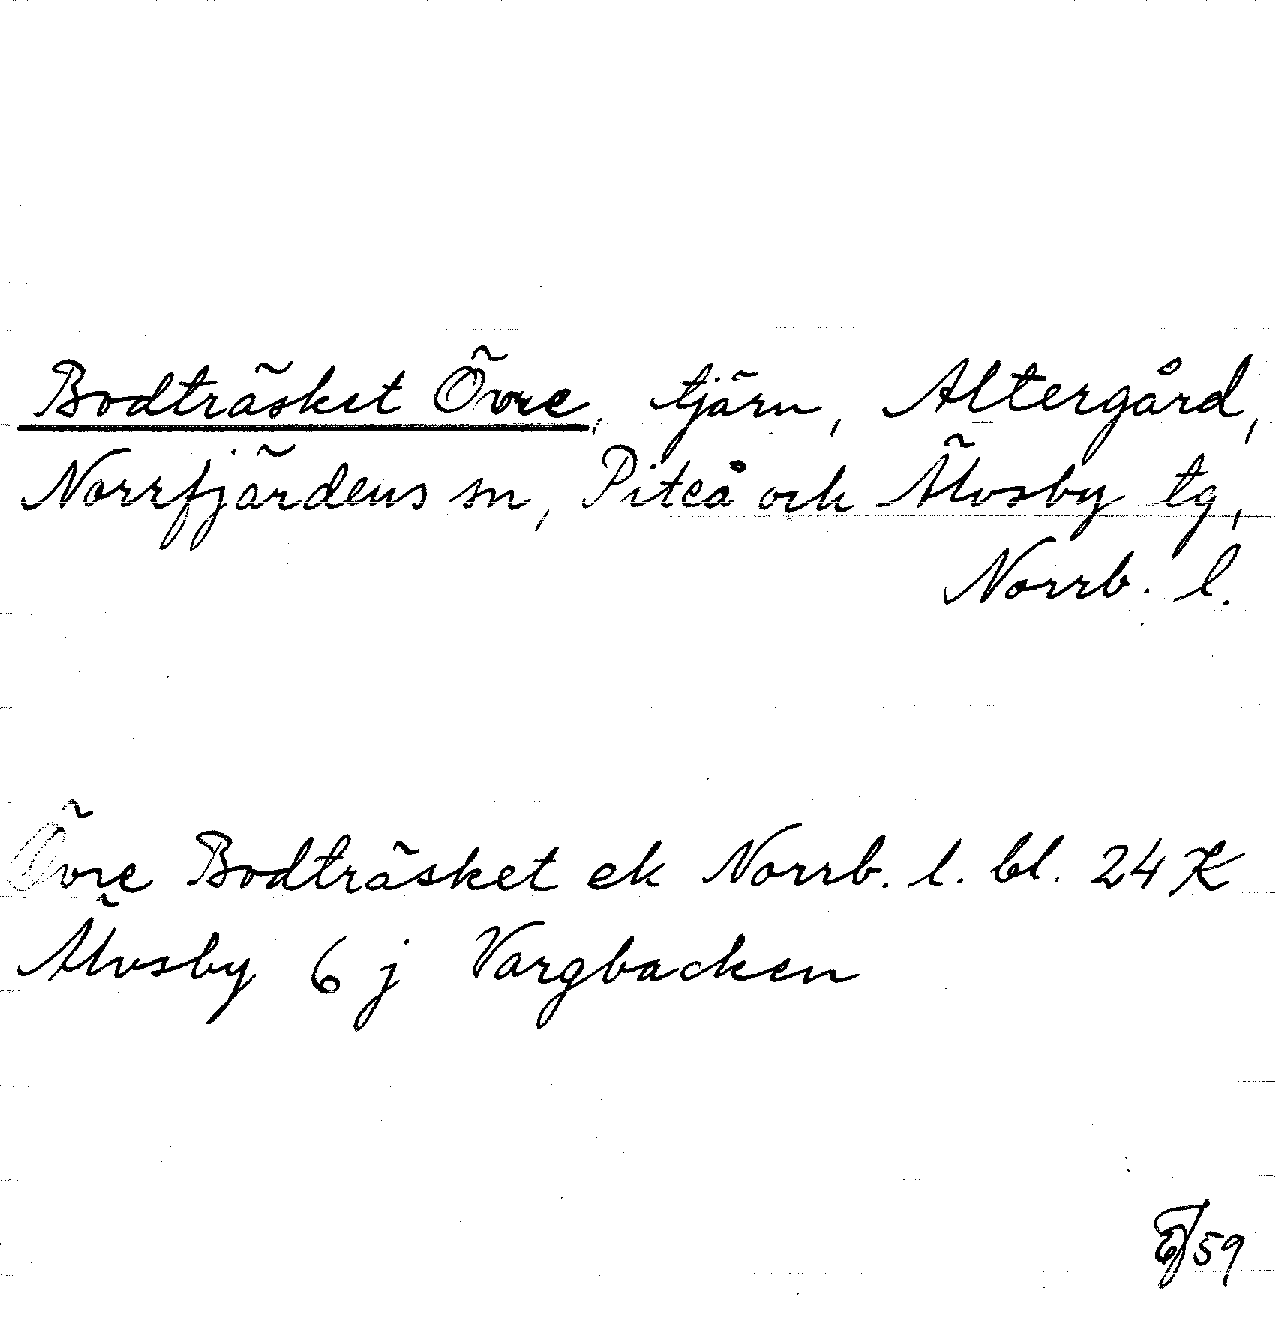 Bodträsket Övre, tjärn, Altergård,
Norrfjärdens sn, Piteå och Älvsby tg,
Norrb. l.
Övre Bodträsket ek Norrb. l. bl. 24 K
Älvsby 6 j Vargbacken
59